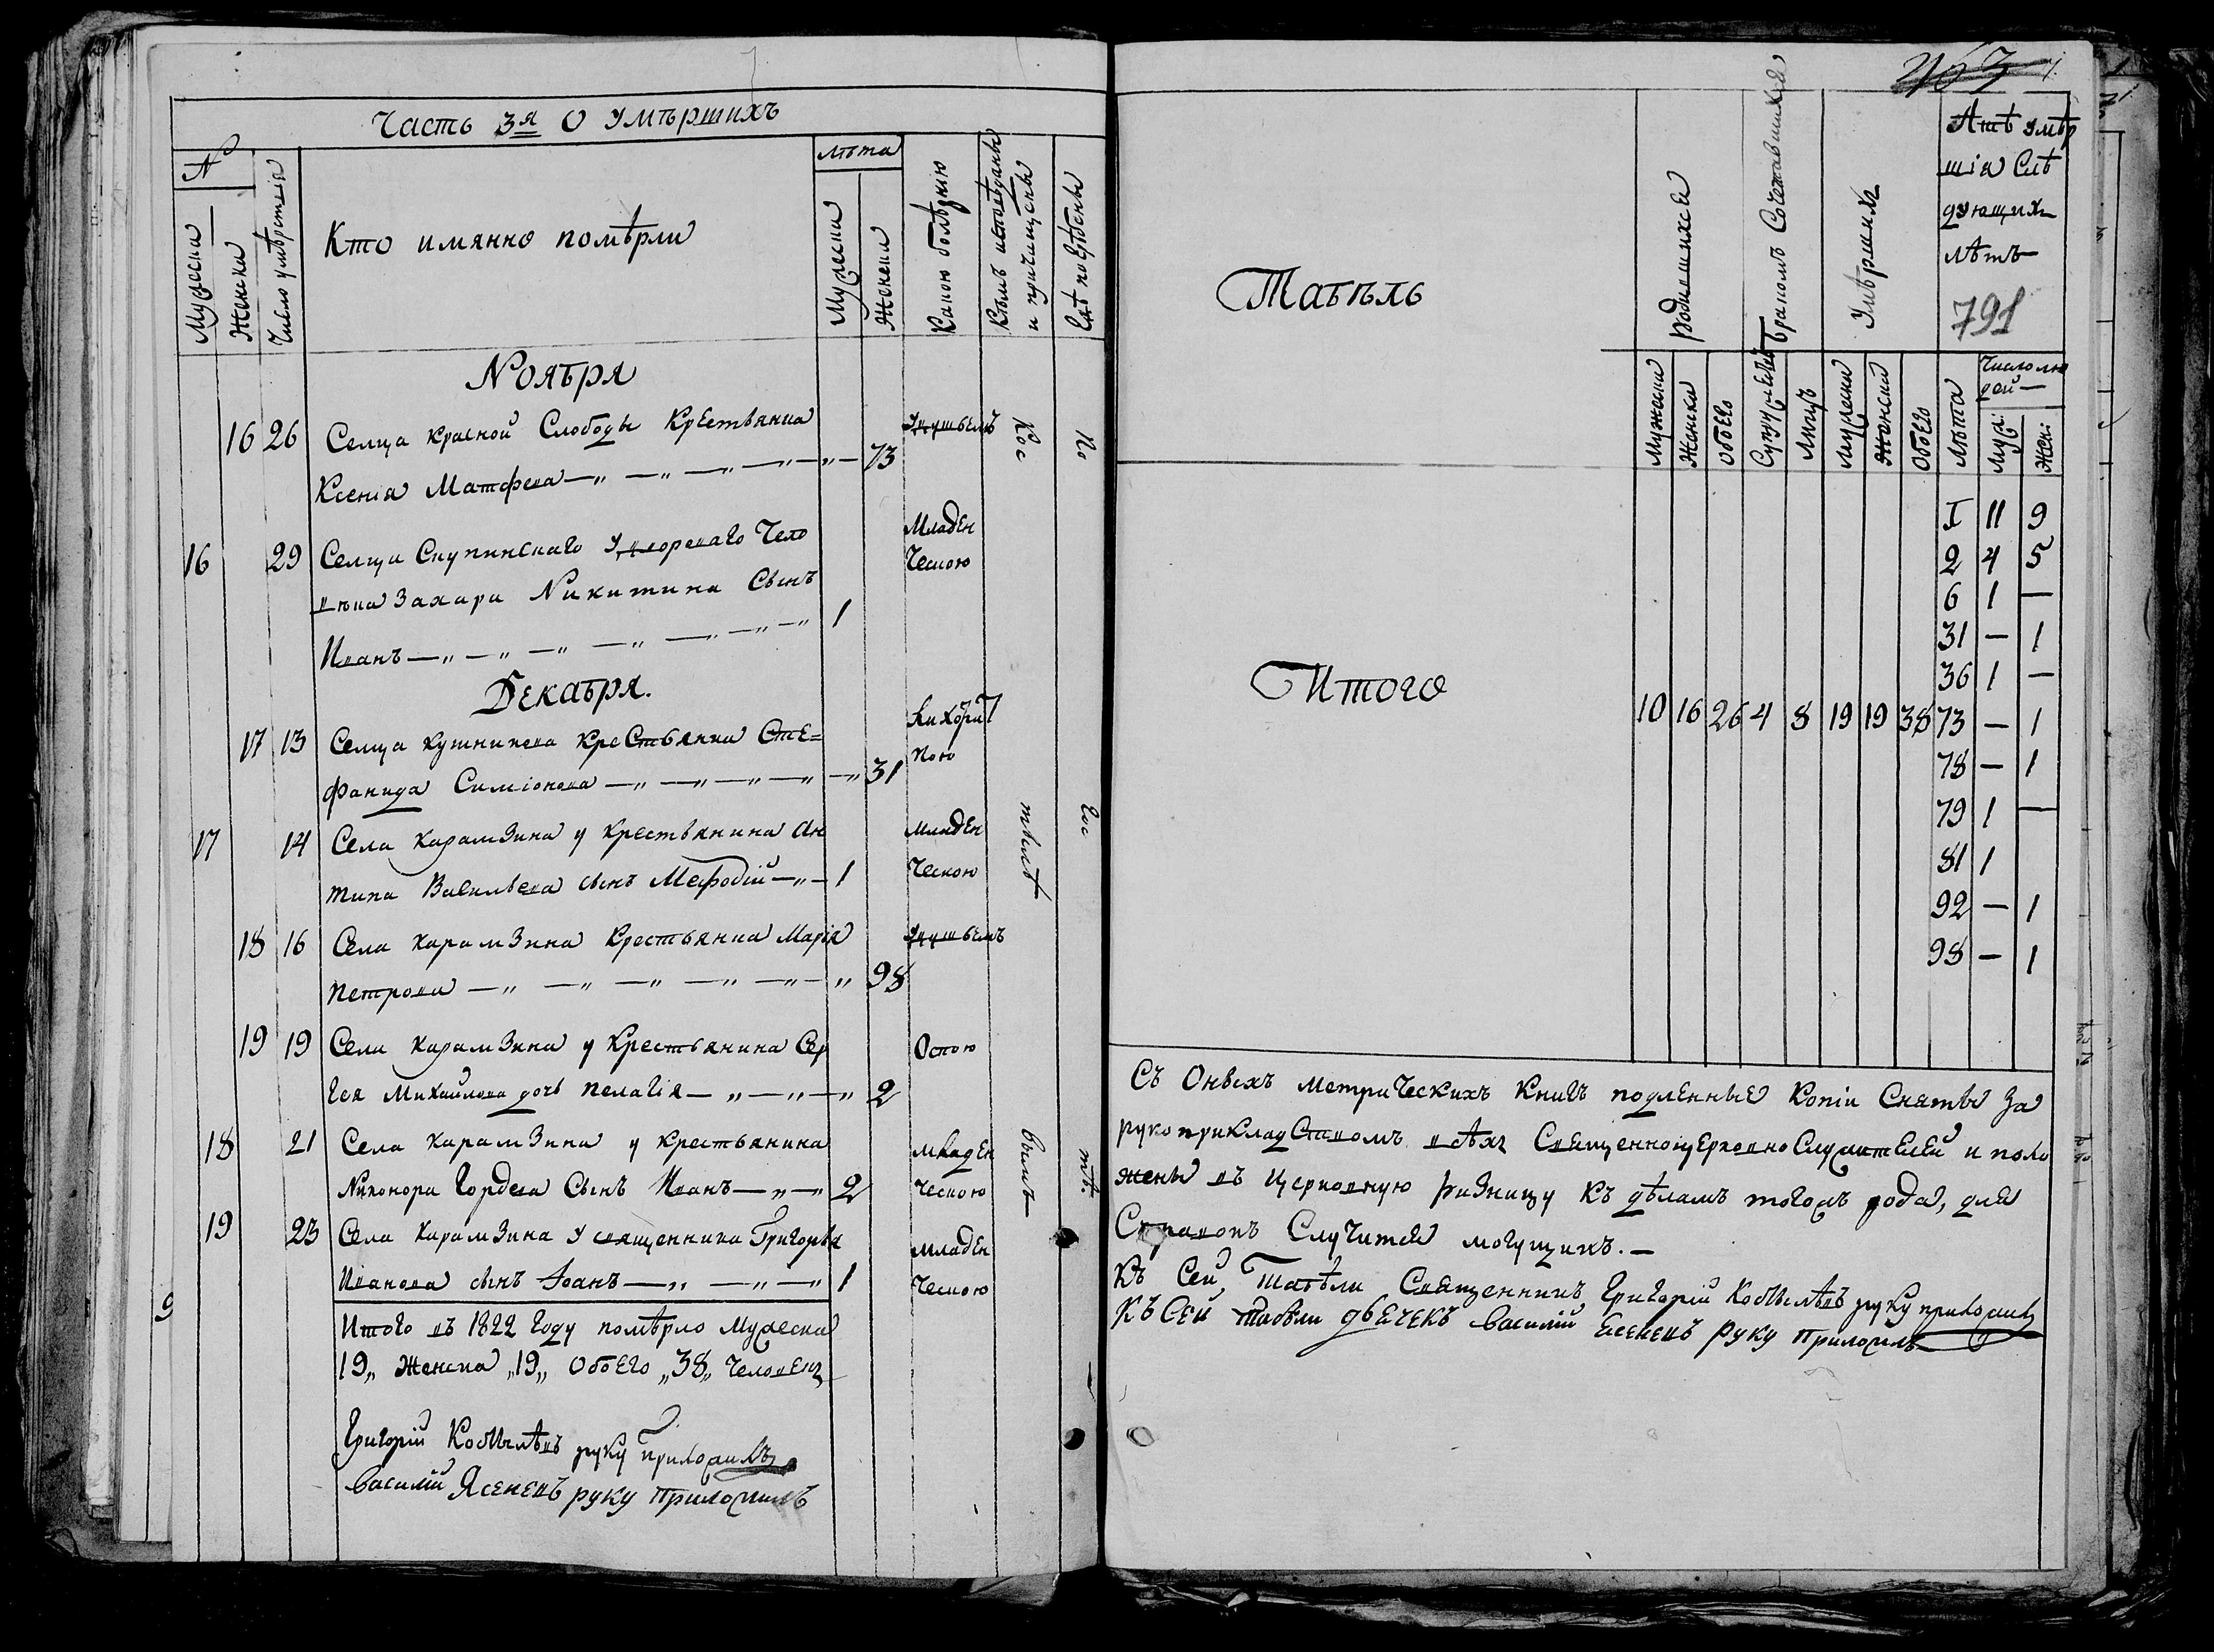 Часть 3я О умѣршихъ
№
Мужеска
Женска
Число умѣртвія
Кто имянно помѣрли
лѣта
Мужеска
Женска
Какою болѣзнію
Кѣмъ исповѣданы
и причищены
Гдѣ погрѣбены
Ноября
16 26 Селца Красной Слободы Крестьянка
Ксенія Матфеева 73
16 29 Селца Скупинскаго у дворового Чело
вѣка Захара Никитина Сынъ
Иванъ 1
Младен
ческою
Декабря.
17 13 Селца Кушникова Крестьянка Сте=
фанида Симіонова 31
17 14 Села Карамзина у Крестьянина Ан
типа Васильева сынъ Мефодій 1
Младен
ческою
18 16 Села Карамзина Крестьянка Марія
Петрова 98
19 19 Села Карамзина у Крестьянина Сер
гея Михайлова дочь Пелагія 2
Оспою
18 21 Села Карамзина у Крестьянина
Никонора Гордева Сынъ Иванъ 2
Младен
ческою
19 23 Села Карамзина у священника Григорья
Иванова сынъ Іоанъ 1
Младен
ческою
Итого въ 1822 Году помѣрло Мужеска
19,, Женска ,,19,, Обоего ,,38,, Человекъ
Григорій Кобылѣвъ руку приложилъ
Василій Ясеневъ руку приложилъ
Табѣль
Родившихся
Бракомъ Сочетавшихся
Умѣршихъ
А умѣр
шія Слѣ
дующихъ
лѣтъ
791
Мужеска
Женска
Обоего
Супружествъ
Лицъ
Мужеска
Женска
Обоего
Лѣта
Число лю
дей
Муж:
Жен:
Итого
10 16 26 4 8 19 19 38
1 11 9
2 4 5
6 1 —
31 — 1
36 1 —
73 — 1
78 — 1
79 1 —
81 1
92 — 1
98 — 1
Съ Оныхъ метрическихъ Книгъ подленные Копіи Сняты за
рукоприкладствомъ всѣхъ Священноцерковно Служителей и поло
жены въ Церковную ризницу къ дѣламъ тогожъ рода, для
Справокъ Случится могущихъ. —
Къ Сей Табѣли Священникъ Григорій Кобылѣвъ руку приложилъ
Къ Сей Табѣли дьечекъ Василій Есеневъ руку приложилъ